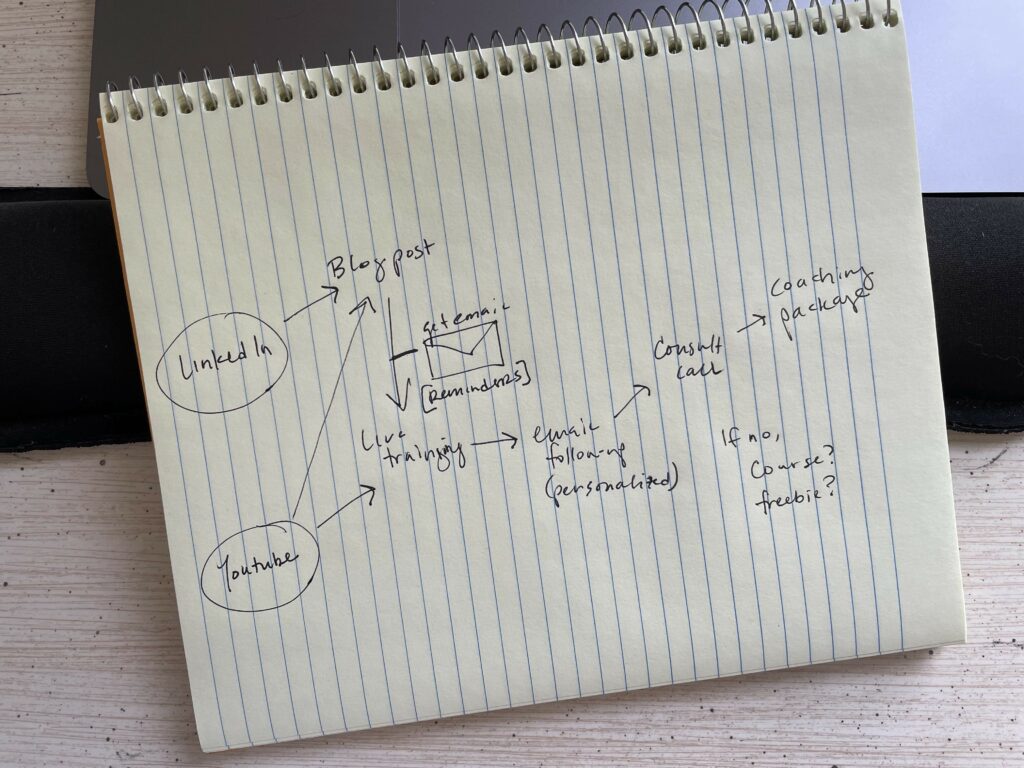 Blog post
LinkedIn
get email
[Reminders]
Youtube
Live
training
email
follow-up
(personalized)
Consult
call
coaching
package
If no,
Course?
freebie?